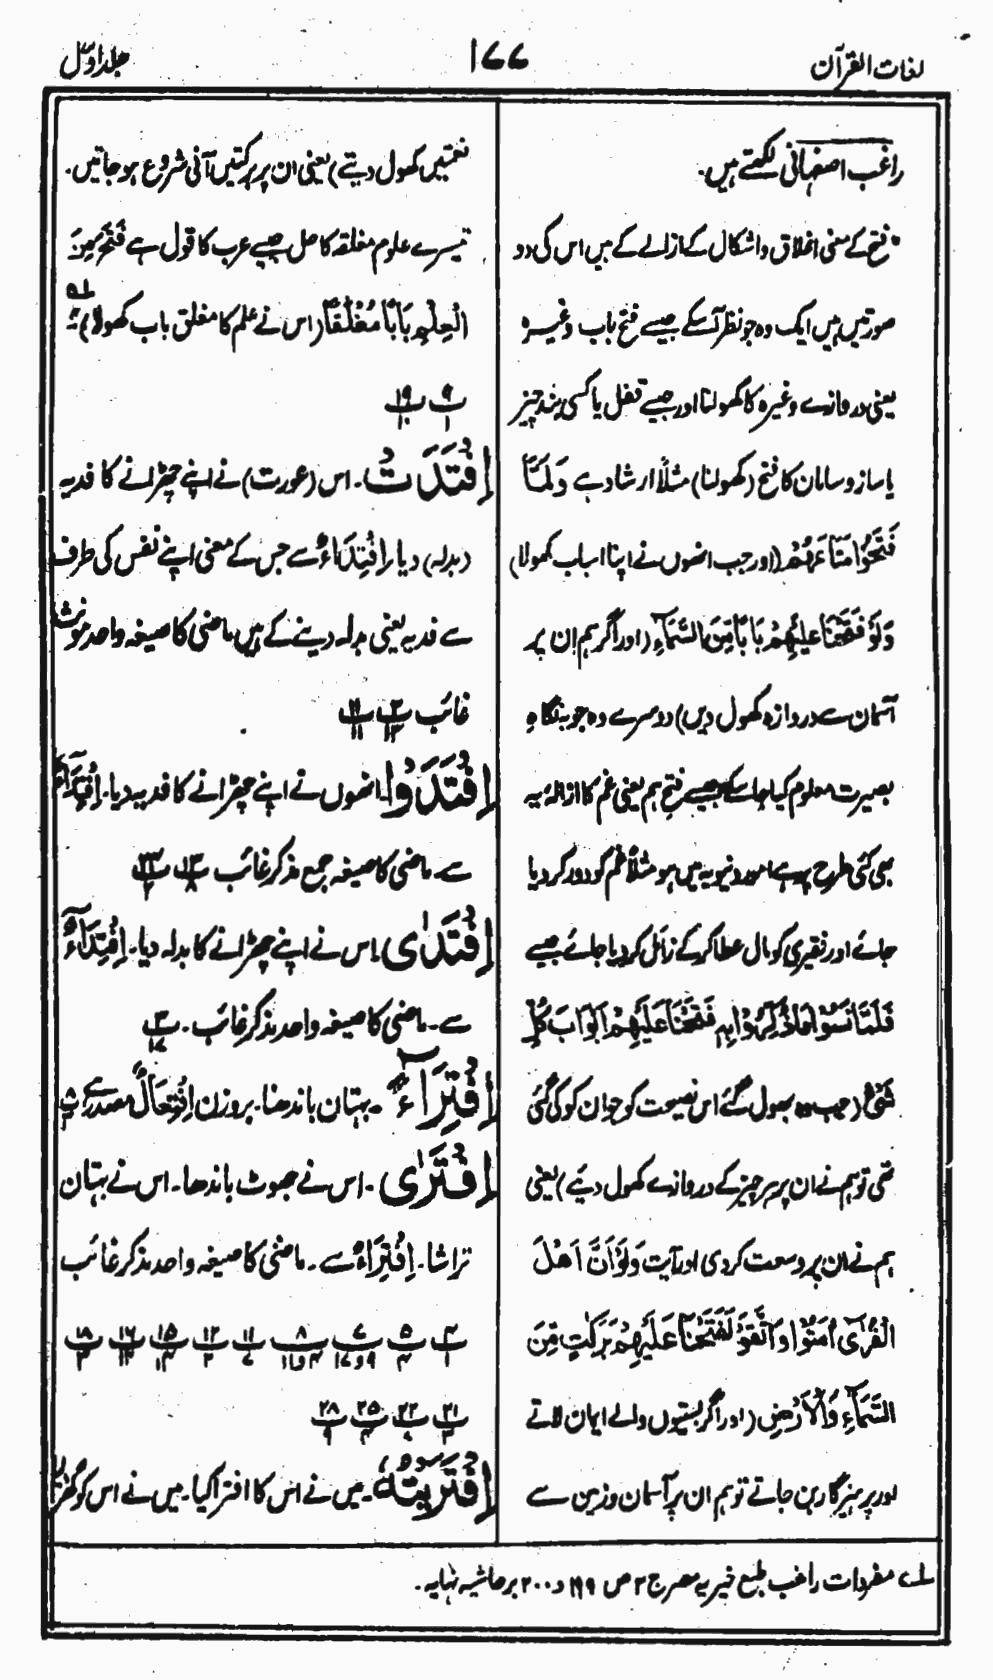 لغات القرآن
۱۷۷
جلد اوّل
راغب اصفہانی لکھتے ہیں۔
"فتح کے معنی اغلاق و اشکال کے ازالے کے ہیں اس کی دو
صورتیں ہیں ایک وہ جو نظر آسکے جیسے فتح باب وغیرہ
یعنی دروازے وغیرہ کا کھولنا اور جیسے قفل یا کسی بند چیز
یا ساز و سامان کا فتح (کھولنا) مثلاً ارشاد ہے وَلَمَّا
فَتَحُوْا مَتَاعَهُمْ (اور جب انھوں نے اپنا اسباب کھولا)
وَلَوْ فَتَحْنَا عَلَيْهِمْ بَابًا مِّنَ السَّمَآءِ (اور اگر ہم ان پر
آسمان سے دروازہ کھول دیں) دوسرے وہ جو بہ نگاہِ
بصیرت معلوم کیا جاسکے جیسے فتحِ ہم یعنی غم کا ازالہ یہ
بھی کئی طرح پر ہے امور دنیویہ میں ہو مثلاً غم کو دور کر دیا
جائے اور فقیری کو مال عطا کر کے زائل کر دیا جائے جیسے
فَلَمَّا نَسُوْا مَا ذُكِّرُوْا بِهٖ فَتَحْنَا عَلَيْهِمْ اَبْوَابَ كُلِّ
شَیْءٍ (جب وہ بھول گئے اس نصیحت کو جو ان کو کی گئی
تھی تو ہم نے ان پر ہر چیز کے دروازے کھول دیئے) یعنی
ہم نے ان پر وسعت کر دی اور آیت وَلَوْ اَنَّ اَهْلَ
الْقُرٰۤى اٰمَنُوْا وَاتَّقَوْا لَفَتَحْنَا عَلَيْهِمْ بَرَكٰتٍ مِّنَ
السَّمَآءِ وَالْاَرْضِ (اور اگر بستیوں والے ایمان لاتے
اور پرہیزگار بن جاتے تو ہم ان پر آسمان و زمین سے
نعمتیں کھول دیتے) یعنی ان پر برکتیں آنی شروع ہو جاتیں۔
تیسرے علوم مغلقہ کا حل جیسے عرب کا قول ہے فَتَحَ مِنَ
الْعِلْمِ بَابًا مُغْلَقًا (اس نے علم کا مغلق باب کھولا)
اِفْتَدَتْ۔ اس (عورت) نے اپنے چھڑانے کا فدیہ
(بدلہ) دیا۔ اِفْتِدَاءٌ سے جس کے معنی اپنے نفس کی طرف
سے فدیہ یعنی بدلہ دینے کے ہیں ماضی کا صیغہ واحد مونث
غائب
اِفْتَدَوْا۔ انھوں نے اپنے چھڑانے کا فدیہ دیا۔ اِفْتِدَاءٌ
سے۔ ماضی کا صیغہ جمع مذکر غائب
اِفْتَدٰی اس نے اپنے چھڑانے کا بدلہ دیا۔ اِفْتِدَاءٌ
سے۔ ماضی کا صیغہ واحد مذکر غائب۔
اِفْتِرَآءٌ۔ بہتان باندھنا۔ بروزن اِفْتِعَالٌ مصدر ہے
اِفْتَرٰی۔ اس نے جھوٹ باندھا۔ اس نے بہتان
تراشا۔ اِفْتِرَاءٌ سے۔ ماضی کا صیغہ واحد مذکر غائب
اِفْتَرَيْتُهٗ۔ میں نے اس کا افترا کیا۔ میں نے اس کو گھڑا
لے مفردات راغب طبع خیریہ مصر ج ۳ ص ۱۹۹ و ۲۰۰ برحاشیہ نہایہ۔